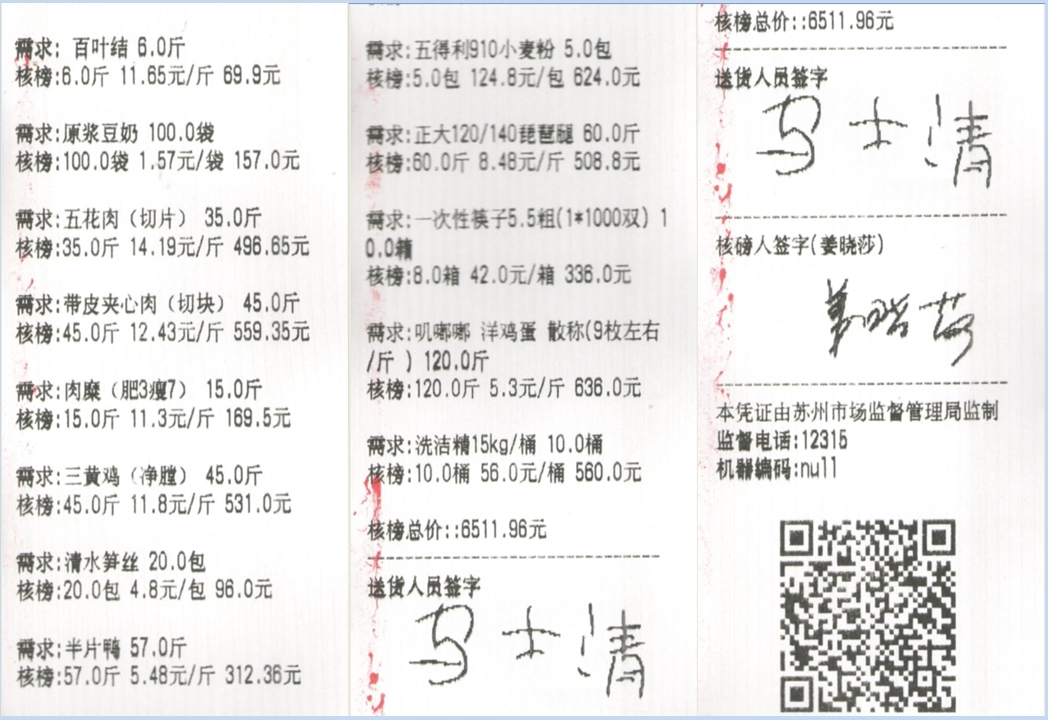 需求: 百叶结 6.0斤
核榜:6.0斤 11.65元/斤 69.9元
需求:原浆豆奶 100.0袋
核榜:100.0袋 1.57元/袋 157.0元
需求:五花肉（切片） 35.0斤
核榜:35.0斤 14.19元/斤 496.65元
需求:带皮夹心肉（切块） 45.0斤
核榜:45.0斤 12.43元/斤 559.35元
需求:肉糜（肥3瘦7） 15.0斤
核榜:15.0斤 11.3元/斤 169.5元
需求:三黄鸡（净膛） 45.0斤
核榜:45.0斤 11.8元/斤 531.0元
需求:清水笋丝 20.0包
核榜:20.0包 4.8元/包 96.0元
需求:半片鸭 57.0斤
核榜:57.0斤 5.48元/斤 312.36元
需求:五得利910小麦粉 5.0包
核榜:5.0包 124.8元/包 624.0元
需求:正大120/140琵琶腿 60.0斤
核榜:60.0斤 8.48元/斤 508.8元
需求:一次性筷子5.5粗(1*1000双) 1
0.0箱
核榜:8.0箱 42.0元/箱 336.0元
需求:叽嘟嘟 洋鸡蛋 散称(9枚左右
/斤 ) 120.0斤
核榜:120.0斤 5.3元/斤 636.0元
需求:洗洁精15kg/桶 10.0桶
核榜:10.0桶 56.0元/桶 560.0元
核榜总价::6511.96元
送货人员签字
马士清
核榜总价::6511.96元
送货人员签字
马士清
核磅人签字(姜晓莎)
姜晓莎
本凭证由苏州市场监督管理局监制
监督电话:12315
机器编码:null